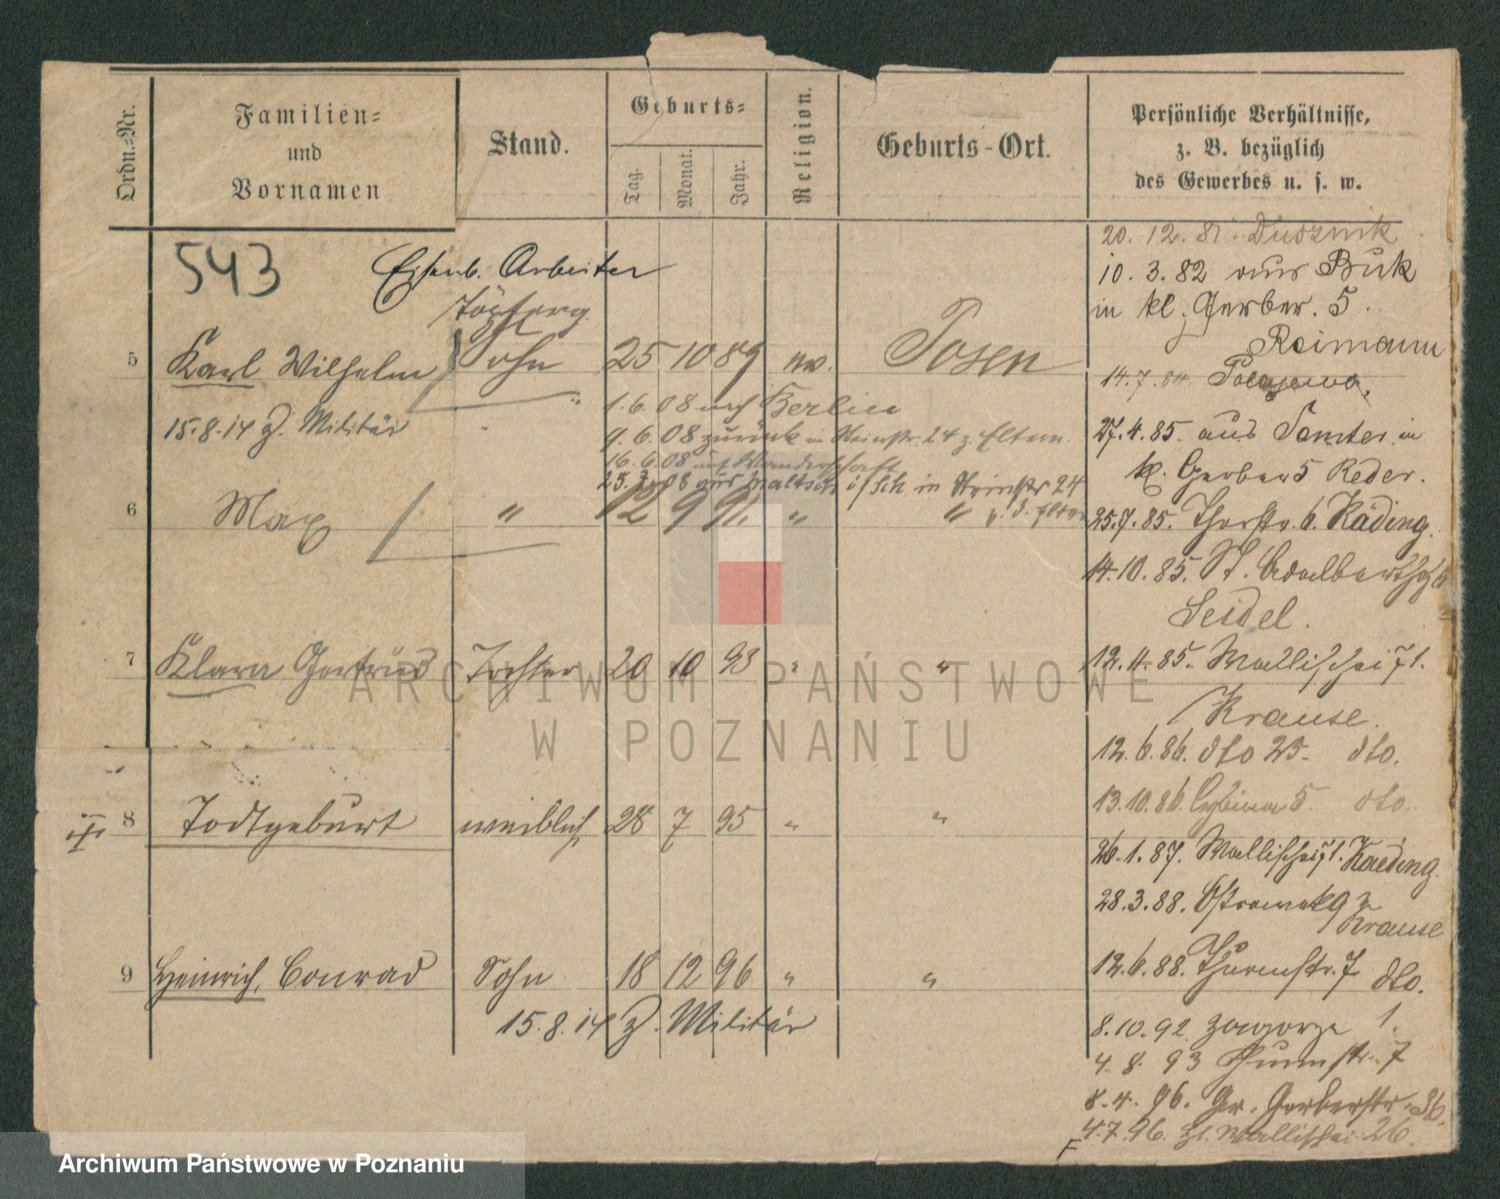 Ordn.-Nr.
Familien-
und
Vornamen
Stand.
Geburts-
Tag.
Monat.
Jahr.
Religion.
Geburts-Ort.
Persönliche Verhältnisse,
z. B. bezüglich
des Gewerbes u. s. w.
543
Eisenb. Arbeiter
5 Karl Wilhelm Sohn 25 10 89 ev. Posen
15.8.14 z. Militär
1.6.08 nach Berlin
9.6.08 zurück in Steinstr. 24 z. Eltern
16.6.08 auf Wanderschaft
in Steinstr 24
6 Max " 12 9 91. " " z. d. Eltern
7 Klara Gertrud Tochter 20 10 93 " "
8 Todtgeburt weiblich 28 7 95 " "
9 Heinrich, Conrad Sohn 18 12 96 " "
15.8.14 z. Militär
20.12.81. Dusznik
10.3.82 aus Buk
in kl. Gerber. 5.
Reimann
14.7.84 Polajewo.
27.4.85. aus Samter in
kl. Gerber 5 Reder.
25.7.85. Thorstr. 6. Käding.
14.10.85. St. Adalbert
Seidel.
12.4.85. Wallischei 71.
Krause.
12.6.86. dto 25. dto.
13.10.86. Cybina 5. dto.
26.1.87. Wallischei 71. Kaeding.
28.3.88. Ostrowek 9
Krause
12.6.88. Thurmstr. 7 dto.
8.10.92 Zaworze 1.
4.8.93 Thurmstr. 7
8.4.96. Gr. Gerberstr. 36.
4.7.96. Wallischei 26
ARCHIWUM PAŃSTWOWE
W POZNANIU
Archiwum Państwowe w Poznaniu